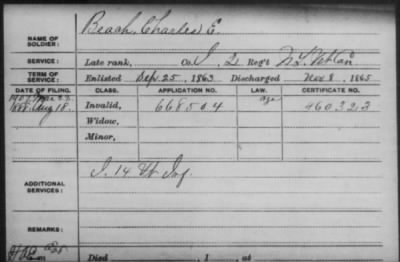 NAME OF SOLDIER: Beach, Charles E.
SERVICE: Late rank, Co. I, 2 Reg't N.Y. Vet Cav.
TERM OF SERVICE: Enlisted Sep 25, 1863 Discharged Nov 8, 1865
DATE OF FILING. CLASS. APPLICATION NO. LAW. CERTIFICATE NO.
Invalid, 668504 460323
Aug 18.
Widow,
Minor,
ADDITIONAL SERVICES: I. 14 Vt Inf.
REMARKS:
Died , 1 , at